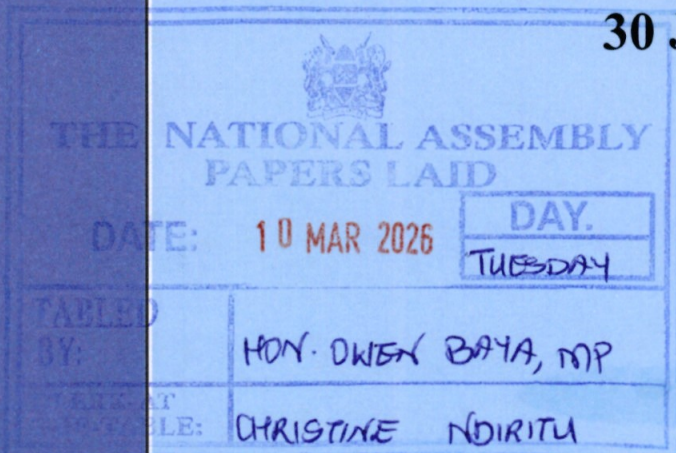 30
THE NATIONAL ASSEMBLY
PAPERS LAID
DATE: 10 MAR 2026
DAY.
TUESDAY
TABLED BY: HON. OWEN BAYA, MP
CLERK-AT THE-TABLE: CHRISTINE NDIRITU